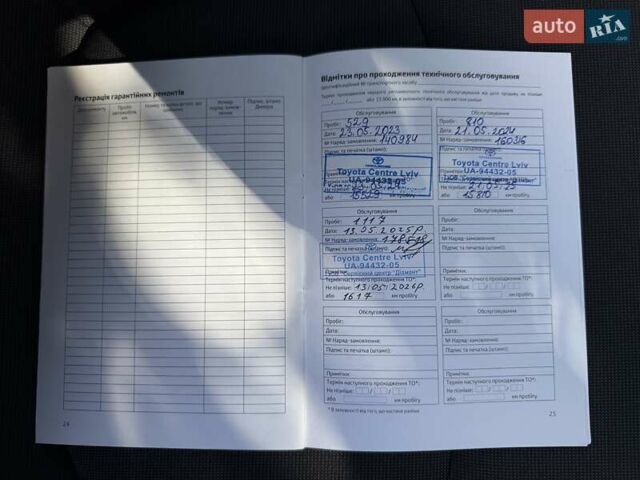 auto RIA .com
Реєстрація гарантійних ремонтів
Пробіг автомобіля, км
Підпис, штамп Дилера
24
Відмітки про проходження технічного обслуговування
або 15 000 км, в залежності від того, що настане раніше
Обслуговування
Пробіг: 529
Дата: 23.05.2023
№ Наряд-замовлення: 140984
Підпис та печатка (штамп):
Toyota Centre Lviv
UA-94432-05
або 15529 км пробігу
Обслуговування
Пробіг: 810
Дата: 21.05.2024
№ Наряд-замовлення: 160316
Підпис та печатка (штамп):
Toyota Centre Lviv
UA-94432-05
Не пізніше: 21.05.25
або 15810 км пробігу
Обслуговування
Пробіг: 1117
Дата: 13.05.2025р
№ Наряд-замовлення: 178518
Підпис та печатка (штамп):
Toyota Centre Lviv
UA-94432-05
Сервісний центр "Діамант"
Примітки:
Термін наступного проходження ТО*:
Не пізніше: 13.05.2026р
або 1617 км пробігу
Обслуговування
Пробіг:
Дата:
№ Наряд-замовлення:
Підпис та печатка (штамп):
Примітки:
Термін наступного проходження ТО*:
Не пізніше:
або км пробігу
Обслуговування
Пробіг:
Дата:
№ Наряд-замовлення:
Підпис та печатка (штамп):
Примітки:
Термін наступного проходження ТО*:
Не пізніше:
або км пробігу
Обслуговування
Пробіг:
Дата:
№ Наряд-замовлення:
Підпис та печатка (штамп):
Примітки:
Термін наступного проходження ТО*:
Не пізніше:
або км пробігу
* В залежності від того, що настане раніше
25